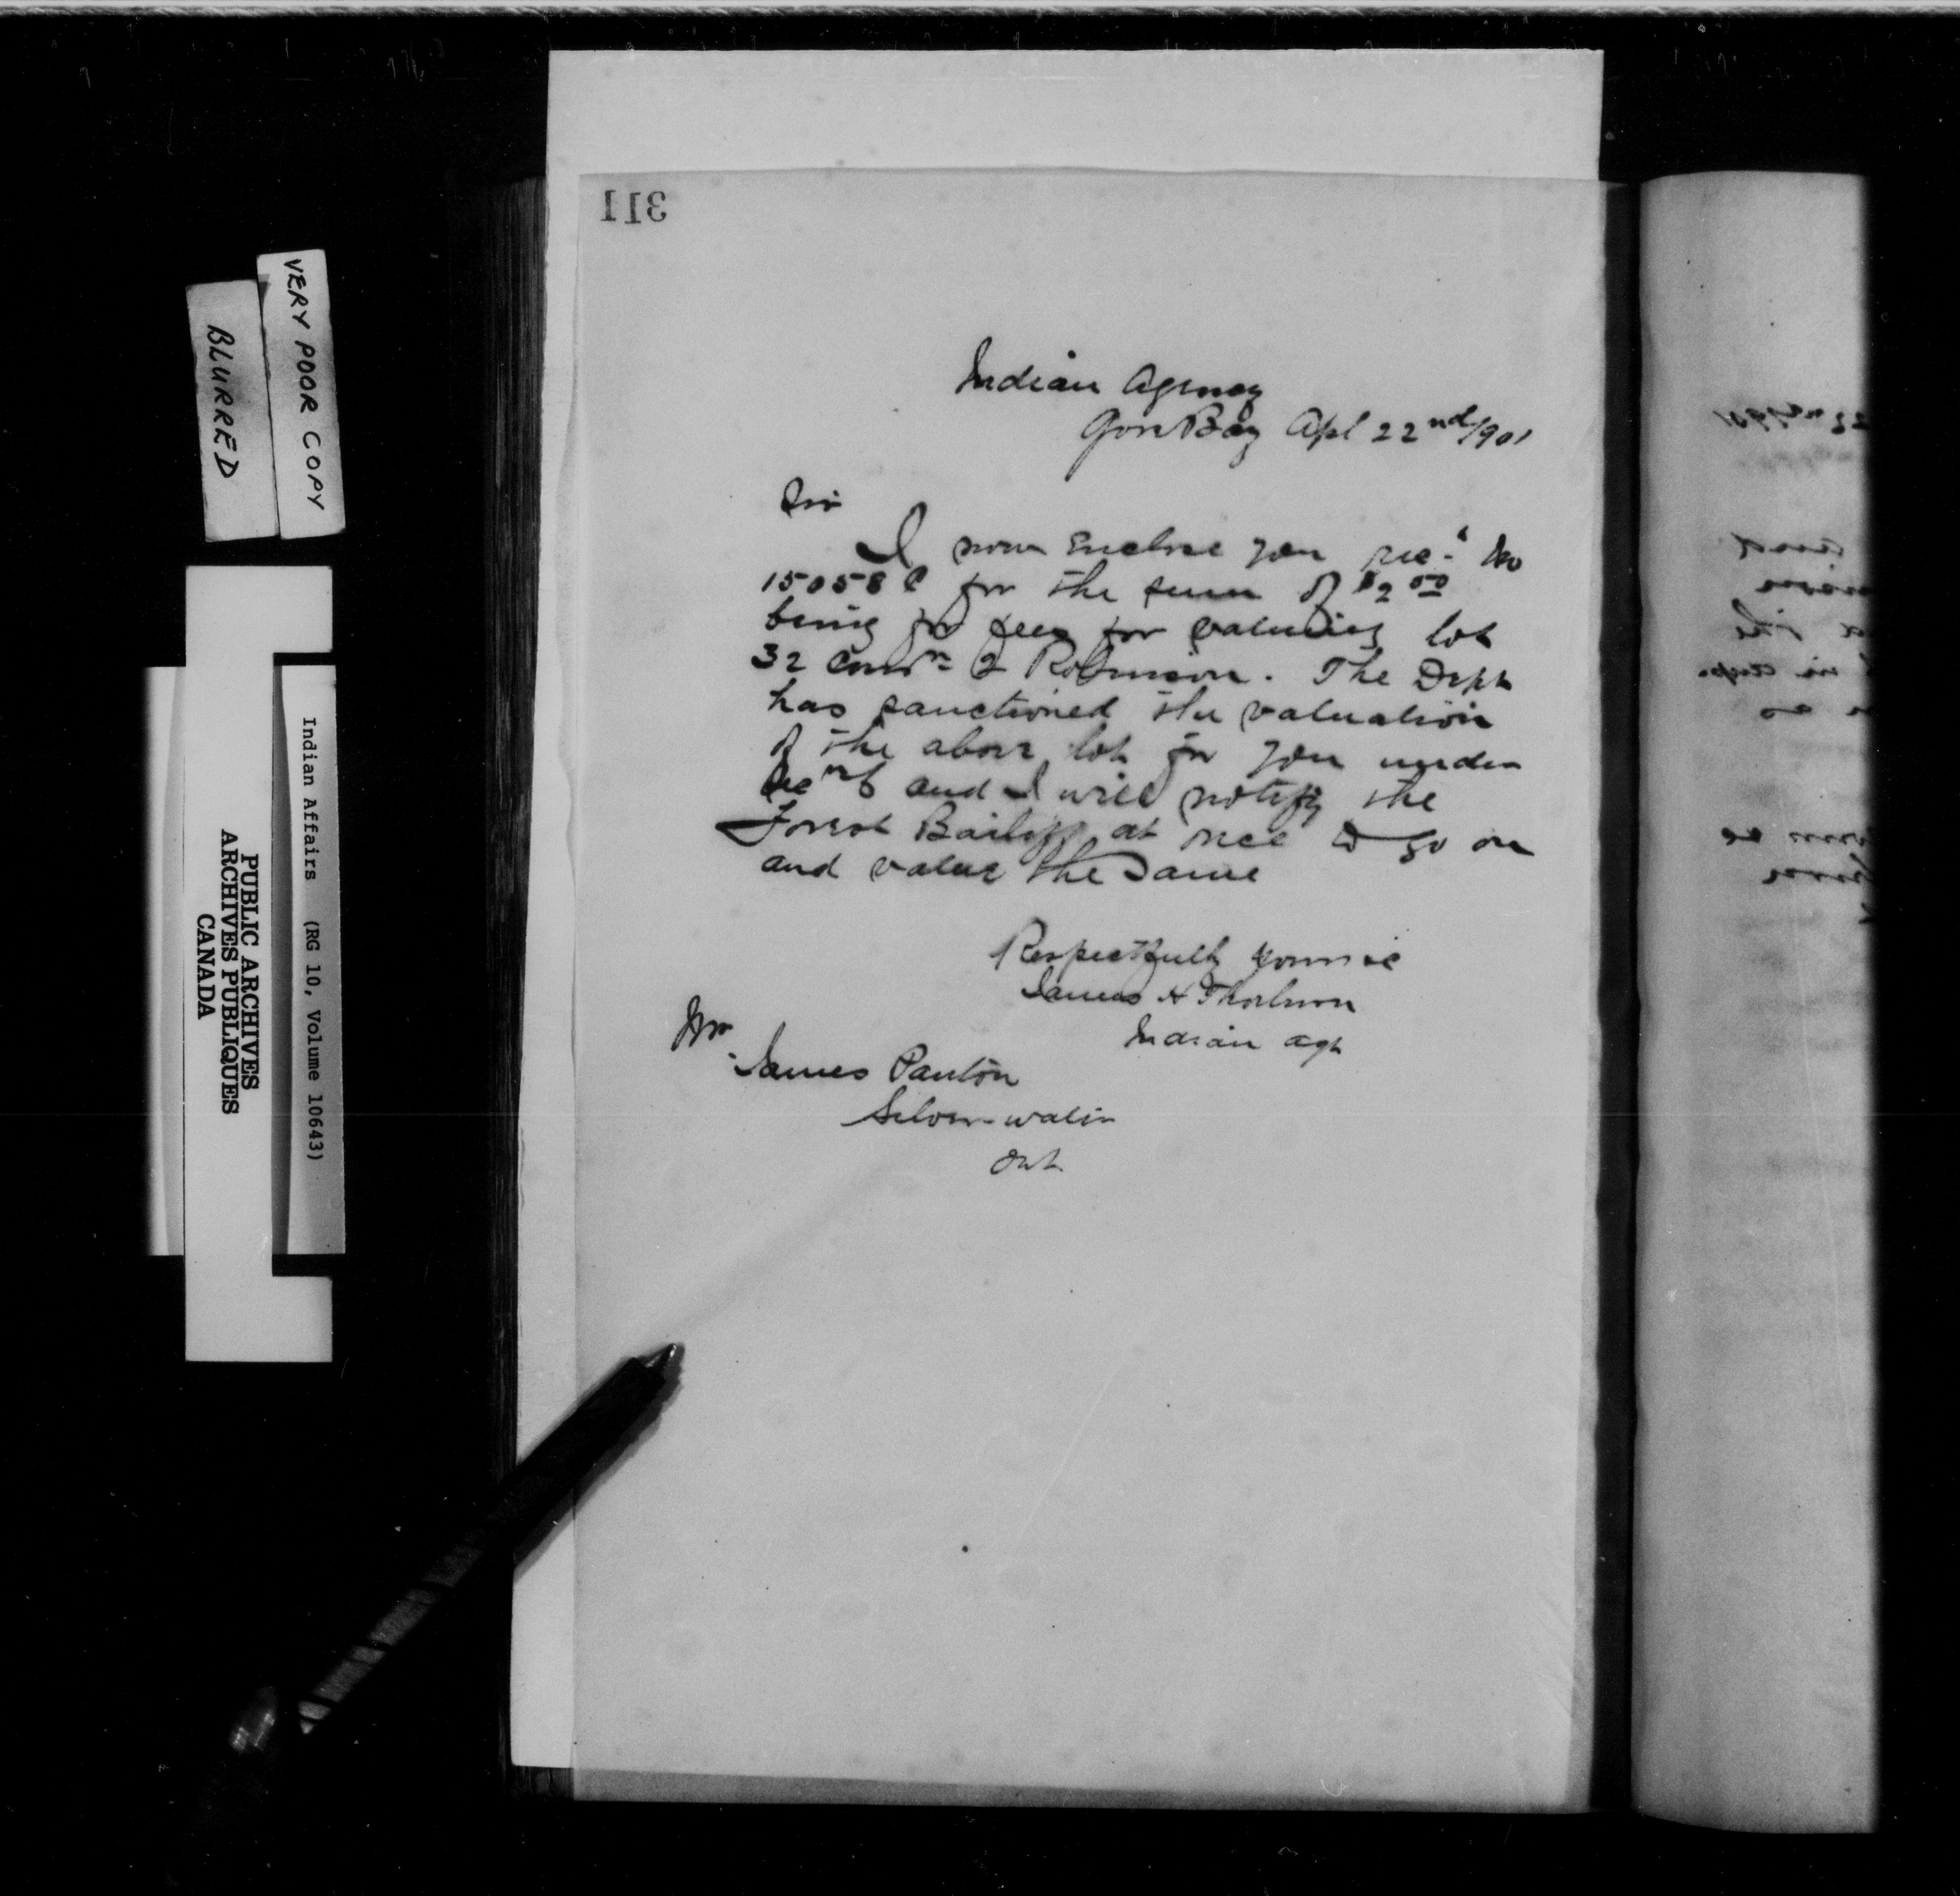 VERY POOR COPY
BLURRED
Indian Affairs (RG 10, Volume 10643)
PUBLIC ARCHIVES
ARCHIVES PUBLIQUES
CANADA
311
Indian Agency
Gore Bay Apl 22nd/901
Sir
I now enclose you rec't No
15058 C for the sum of $2.00
being for fees for valuing lot
32 Con 2 Robinson. The Dept
has sanctioned the valuation
of the above lot for you under
and I will notify the
Forest Bailiff at once to go on
and value the same
Respectfully yours
James H Thorburn
Indian Agt
Mr
James Panton
Silver-water
Ont